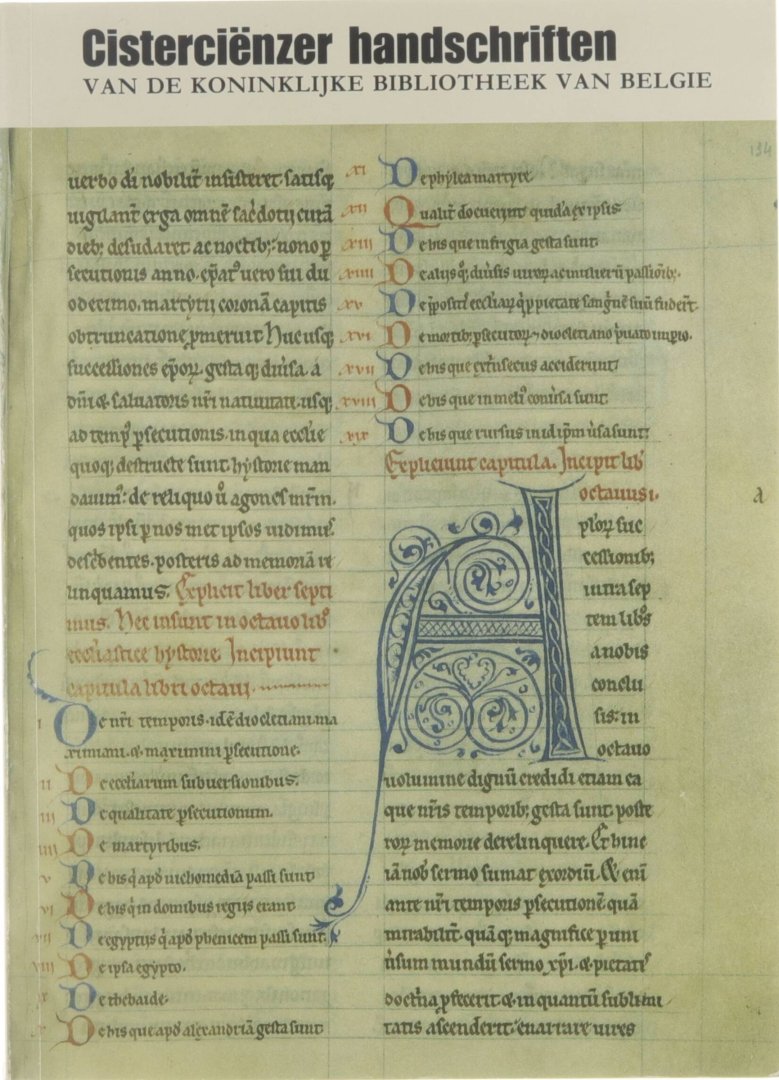 Cisterciënzer handschriften
VAN DE KONINKLIJKE BIBLIOTHEEK VAN BELGIE
194
uerbo dī nobilit̄ insisteret satisq;
uigilant̄ erga omnē sac̄dotij curā
dieb; desudaret ac noctib; nono p̄
secutionis anno. ep̄at' uero sui du
odecimo. martyrij coronā capitis
obtruncatione p̄meruit. Huc usq;
successiones ep̄oꝝ. gesta q; diu̾sa. a
dn̄i & saluatoris nr̄i natiuitate. usq;
ad temp' p̄secutionis. in qua eccl̄ie
quoq; destructe sunt. hystorie man
dauim'. de reliquo u̾ agones mr̄m.
quos ipsi p̄ nos met ipsos uidim'.
desc̄bentes. posteris ad memoriā re
linquamus. Explicit liber septi
mus. Hec insunt in octauo lib̾
eccl̾iastice hystorie. Incipiunt
capitula libri octaui.
i De nr̄i temporis. id ē dioclet̾iani. ma
ximiani. & maximini p̄secutione.
ii De eccl̾iarum subuersionibus.
iii De qualitate p̄secutionum.
iiii De martyribus.
v De his q̄ apd̾ nichomediā passi sunt
vi De his q̄ in domibus regijs erant
vii De egyptijs q̄ apd̾ phenicem passi sunt.
viii De ipsa egypto.
ix De thebaide.
x De his que apd̾ alexandriā gesta sunt
xi De phylea martyre
xii Qualit̄ docuer̄int quid ağe ipsis
xiii De his que in frigia gesta sunt.
xiiii De alijs q; diu̾sis uiroꝝ ac mulierū passiōib;.
xv De p̄positis eccl̾iaꝝ q̄ p̄ pietate sang̾nē suū fuder̄t.
xvi De morib; p̄secutoꝝ & diocletiano p̄uato imp̾io.
xvii De his que ext̾nsecus acciderunt
xviii De his que in meli' conu̾sa sunt.
xix De his que rursus in id ip̄m u̾sa sunt.
Expliciunt capitula. Incipit lib̾
octauus i.
Apl̾oꝝ suc
cessionib;
intra sep
tem lib̾s
a nobis
conclu
sis. in
octauo
uolumine dignū credidi etiam ea
que nr̄is temporib; gesta sunt. poste
roꝝ memorie derelinquere. Et hinc
iā nob̾ sermo sumat exordiū. & enī
ante nr̄i temporis p̄secutionē quā
mirabilit̄. quā q; magnifice p̄ uni
u̾sum mundū sermo xp̄i. & pietatis
doctr̾ina p̄fecerit. & in quantū sublimi
tatis ascenderit. enarrare uires